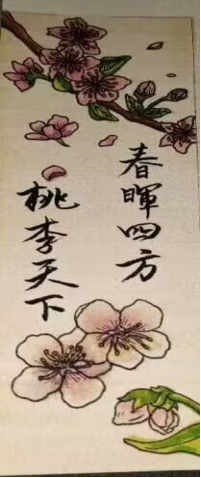 春暉四方
桃李天下